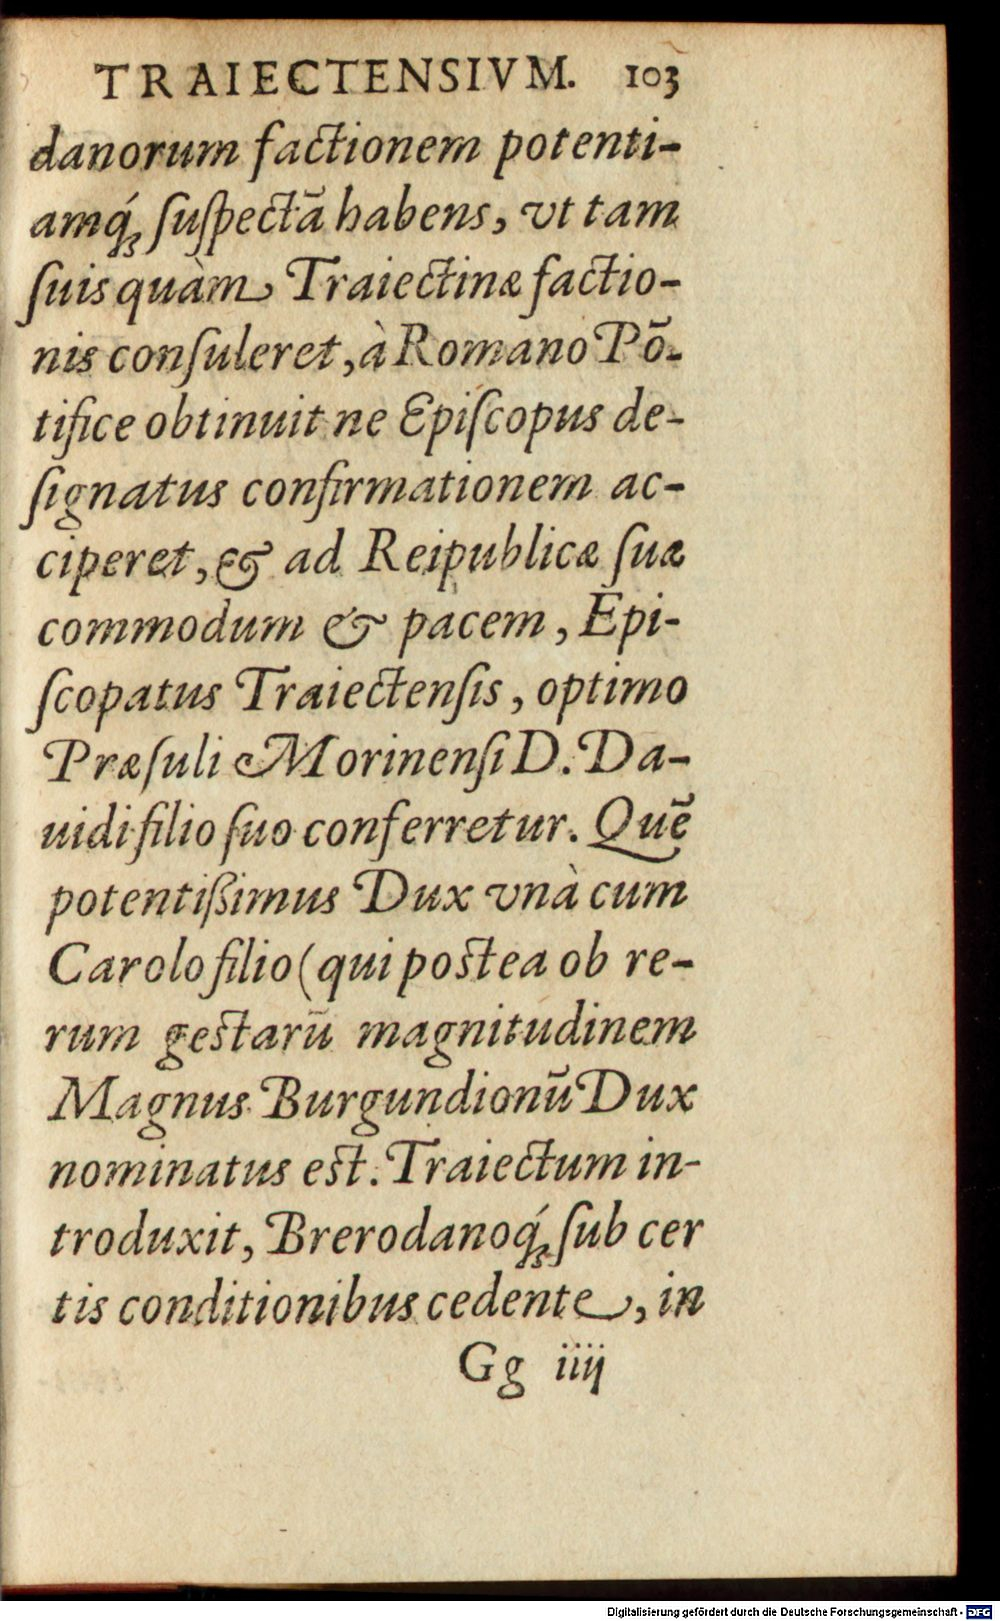 TRAIECTENSIVM. 103
danorum factionem potenti-
amq́; ſuſpectã habens, vt tam
ſuis quàm Traiectinæ factio-
nis conſuleret, à Romano Põ-
tifice obtinuit ne Epiſcopus de-
ſignatus confirmationem ac-
ciperet, & ad Reipublicæ ſuæ
commodum & pacem, Epi-
ſcopatus Traiectenſis, optimo
Præſuli Morinenſi D. Da-
uidi filio ſuo conferretur. Quẽ
potentißimus Dux vnà cum
Carolo filio (qui postea ob re-
rum gestarũ magnitudinem
Magnus Burgundionũ Dux
nominatus est. Traiectum in-
troduxit, Brerodanoq́; ſub cer
tis conditionibus cedente, in
Gg iiij
Digitalisierung gefördert durch die Deutsche Forschungsgemeinschaft - DFG